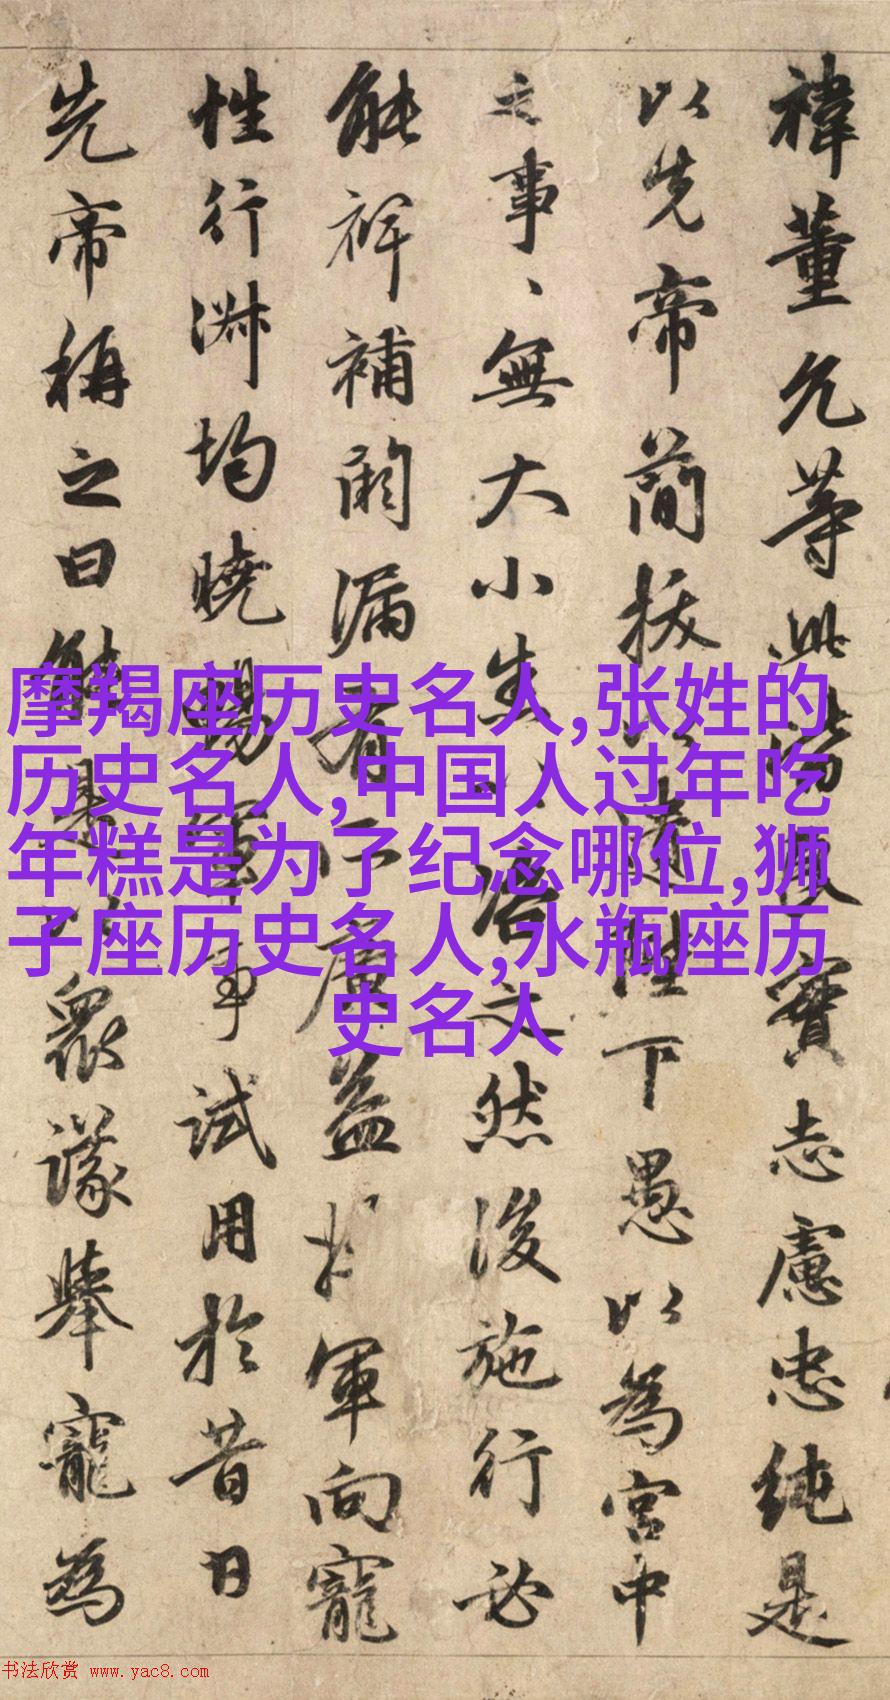 禕董允等此皆良實志慮忠純是
以先帝簡拔以遺陛下愚以為宮中
之事、無大小悉以咨之然後施行必
能裨補闕漏有所廣益將軍向寵
性行淋均曉暢軍事試用於昔日
先帝稱之曰能是以衆議舉寵為
摩羯座历史名人,张姓的
历史名人,中国人过年吃
年糕是为了纪念哪位,狮
子座历史名人,水瓶座历
史名人
书法欣赏 www.yac8.com